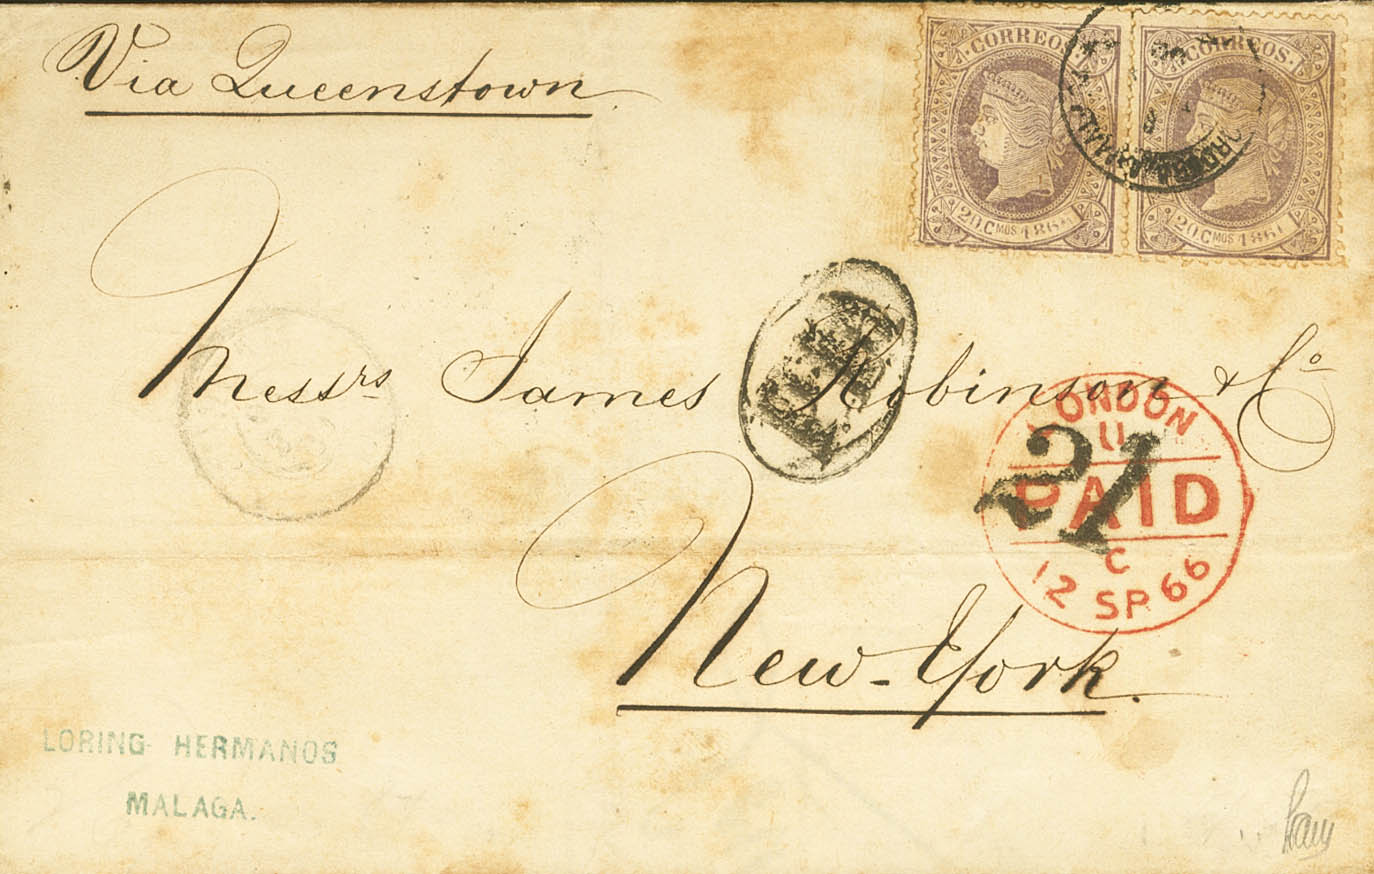 Via Queenstown
CORREOS.
CORREOS.
20. CMOS 1866
20. CMOS 1866
Messrs James Robinson & Co
LONDON
PAID
21
C
12 SP 66
New-York.
LORING HERMANOS
MALAGA.